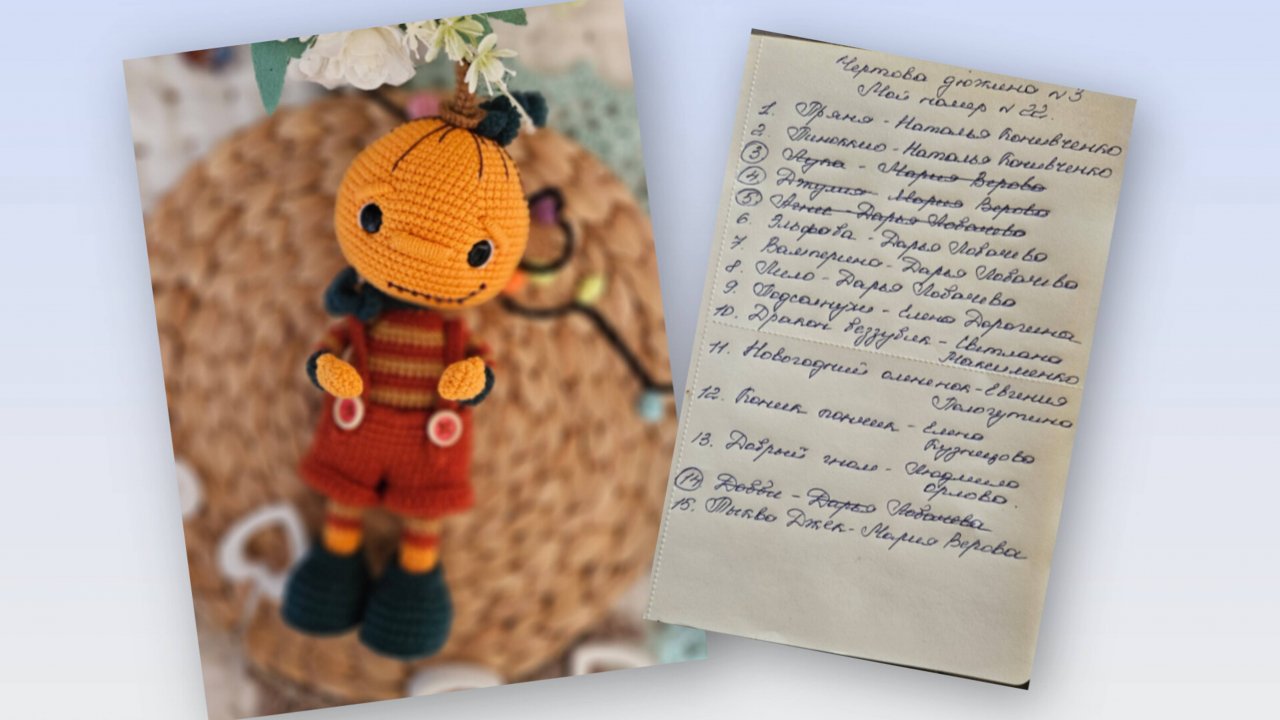 Чертова дюжина №3
Мой номер №22.
1. Пряня - Наталья Конивченко
2. Пиноккио - Наталья Конивченко
3 - Мария Верова
4 Джулия - Мария Верова
5 Агнес - Дарья Лобачева
6. Эльфова - Дарья Лобачева
7. Вамперина - Дарья Лобачева
8. Лило - Дарья Лобачева
9. Подсолнухи - Елена Дорогина
10. Дракон Беззубик - Светлана
Максименко
11. Новогодний олененок - Евгения
Пологутина
12. Коник пончик - Елена
Кузнецова
13. Добрый гном - Людмила
Орлова.
14 Добби - Дарья Лобачева
15. Тыква Джек - Мария Верова